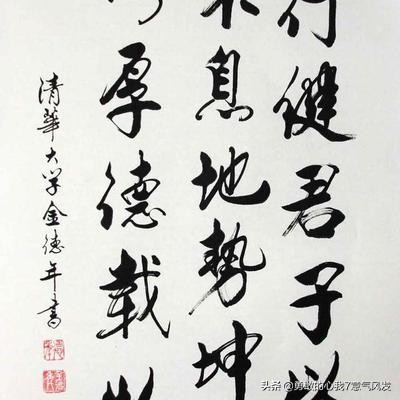 行健君子以
不息地勢坤
厚德載物
清華大学金德年書
头条 @勇敢的心我7意气风发